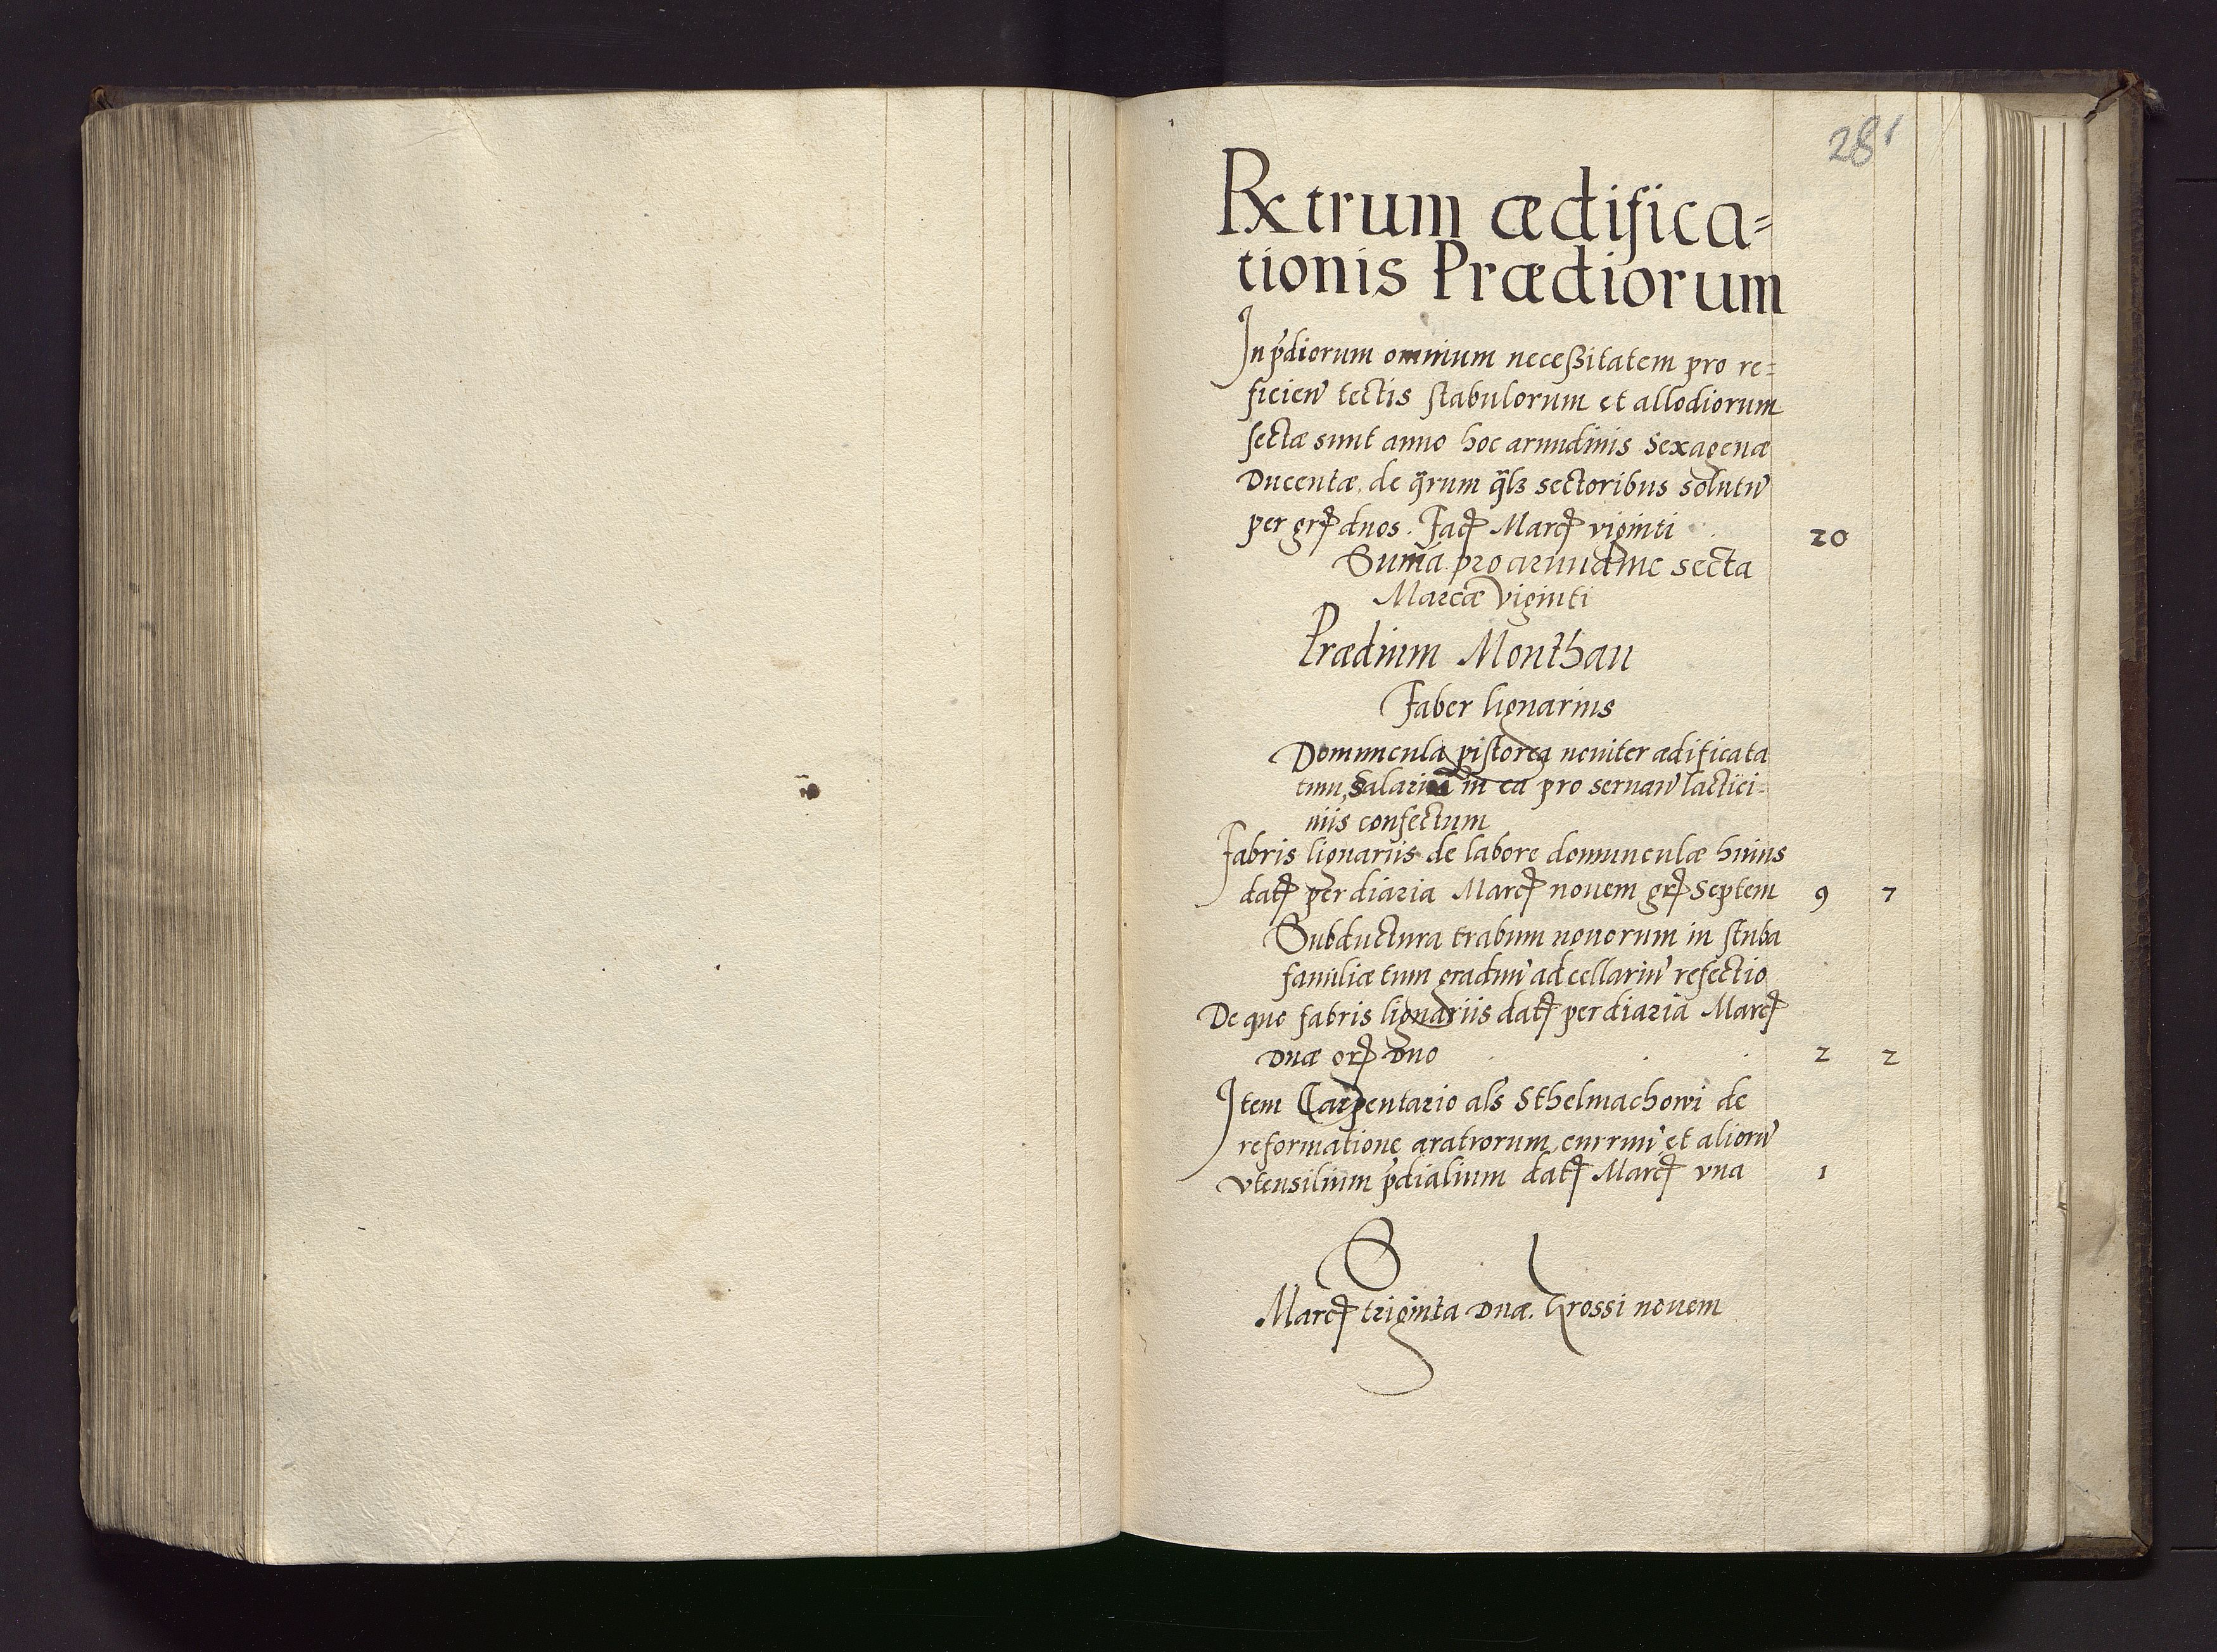 281
Rxtrum ædifica=
tionis Prædiorum
In p̄diorum omnium neceßitatem pro re=
ficien̄ tectis stabulorum et allodiorum
sectæ sunt anno hoc arundinis Sexagenæ
Ducentæ, de q̄rum q̄lꝫ sectoribus solutū
per grꝭ duos. Facꝭ Marcꝭ viginti 20
Sum̄a pro arundine secta
Marcæ viginti
Prædium Monthau
Faber lignarius
Domuncula pistorea noviter ædificata
tum salariū in ea pro servan̄ lactici=
niis confectum
Fabris lignariis de labore domunculæ huius
datꝭ per diaria Marcꝭ novem grꝭ Septem 9 7
Subductura trabum novorum in stuba
familiæ tum graduū ad cellariū refectio
De quo fabris lignariis datꝭ per diaria Marcꝭ
Duæ grꝭ Duo 2 2
Item Carpentario als Sthelmachowi de
reformatione aratrorum, curruū et aliorū
vtensilium p̄dialium datꝭ Marcꝭ vna 1
S
Marcꝭ triginta Duæ. Grossi novem